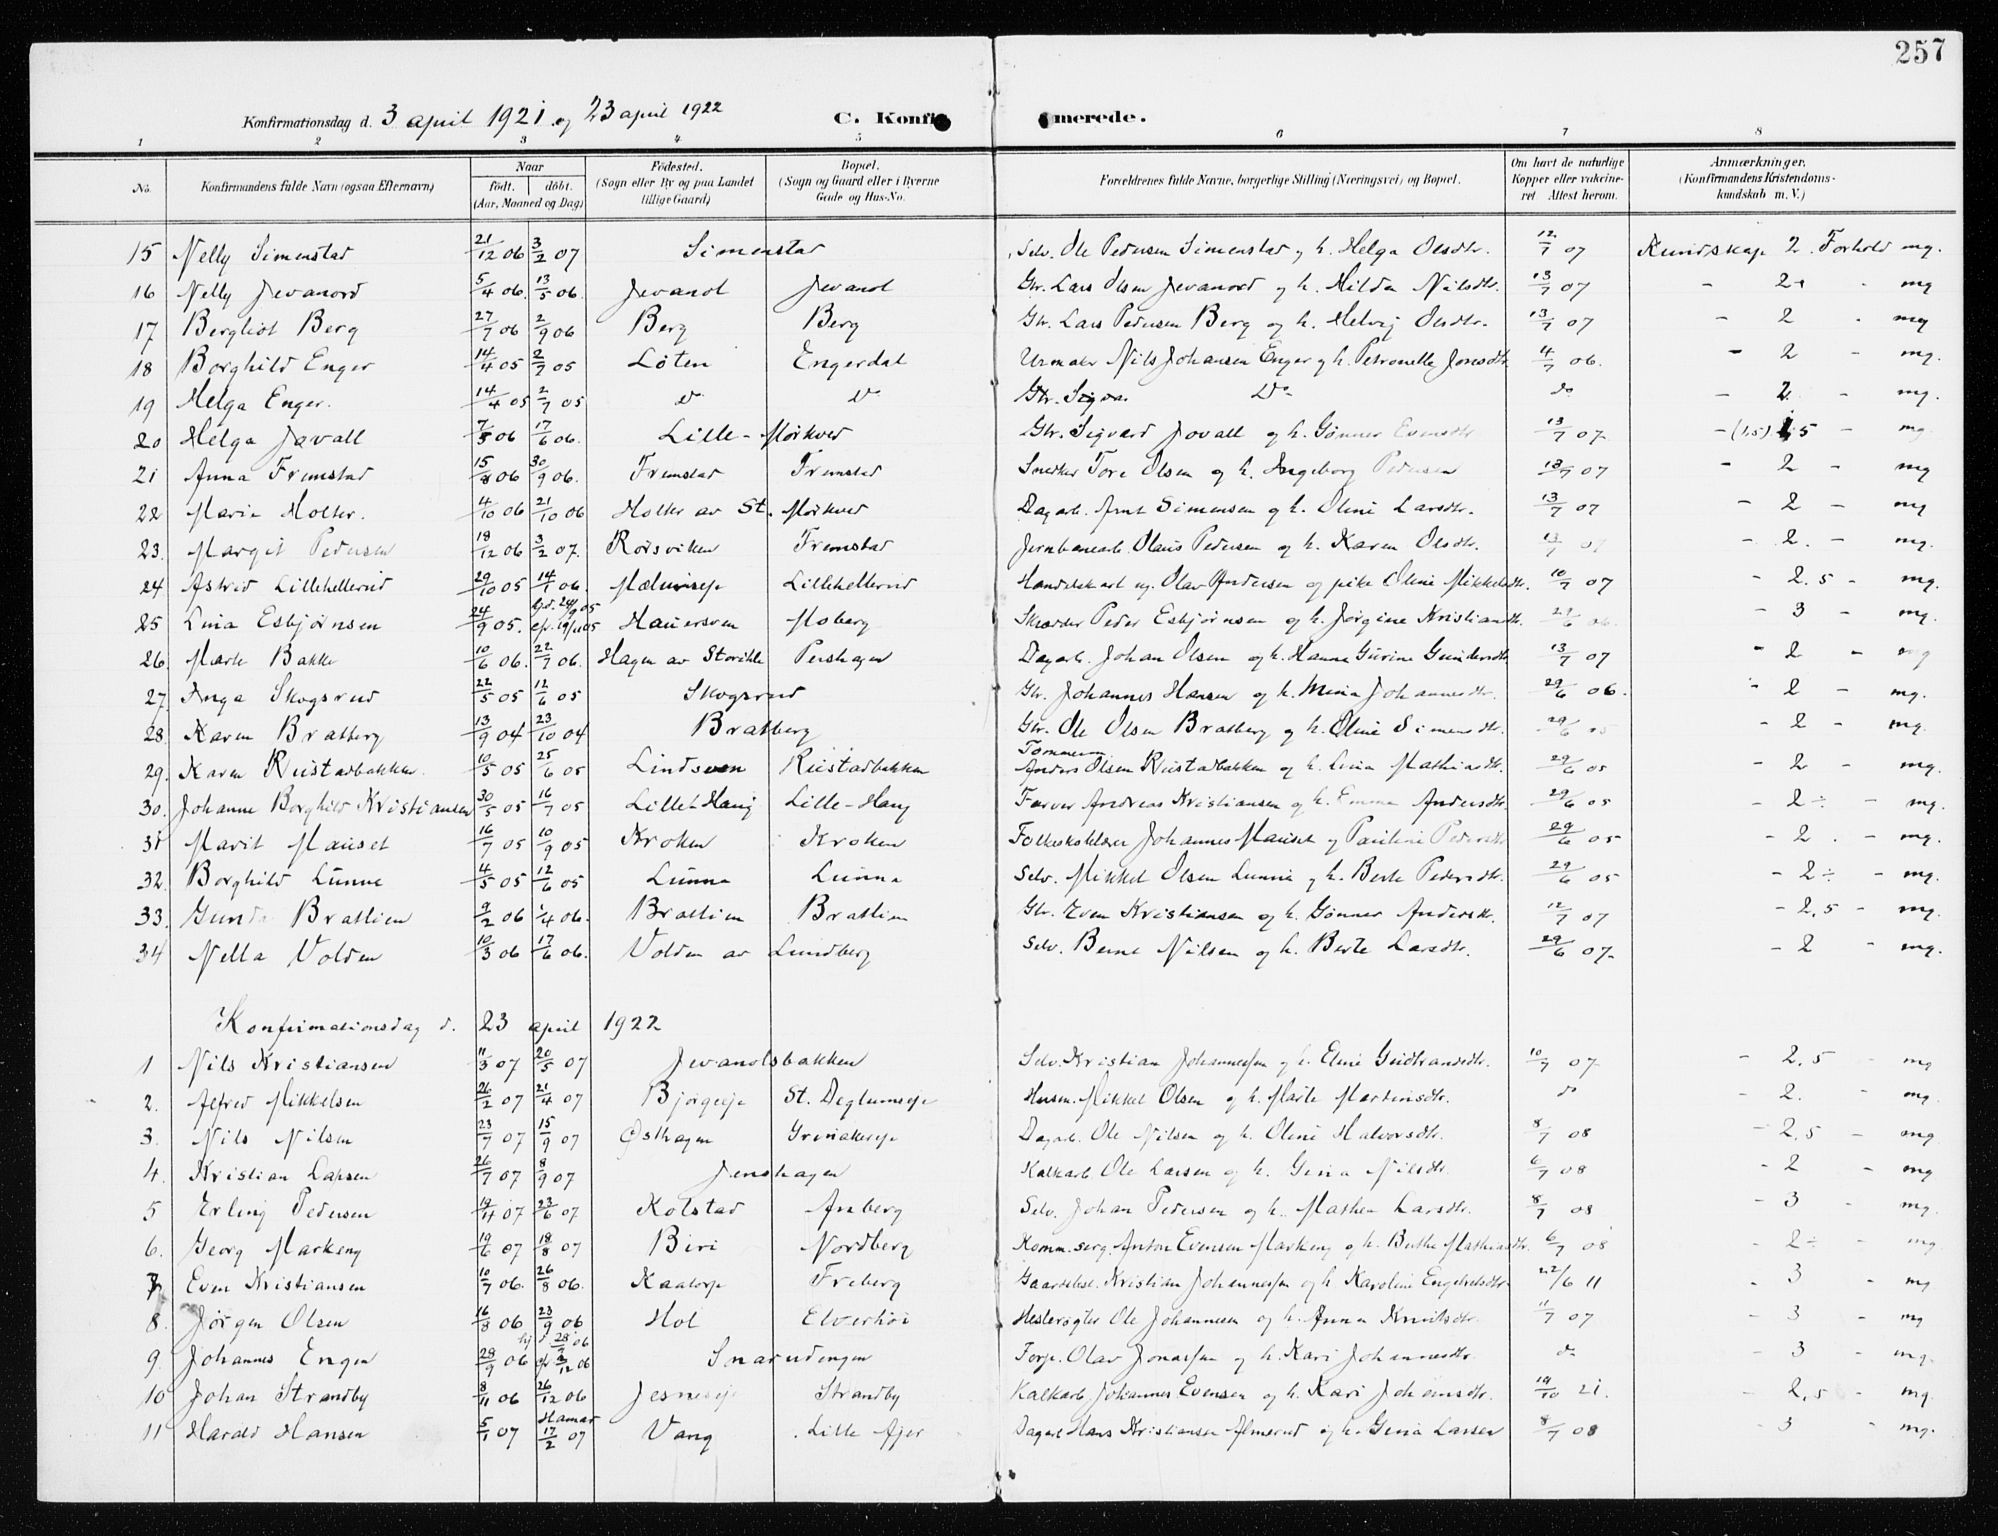 257
Konfirmationsdag d. 3 april 1921 og 23 april 1922 C. Konfi merede.
1 2 3 4 5 6 7 8
No. Konfirmandens fulde Navn (ogsaa Efternavn) Naar født. døbt. (Aar, Maaned og Dag) Fødested. (Sogn eller By og paa Landet tillige Gaard) Bopæl. (Sogn og Gaard eller i Byerne Gade og Hus-No. Forældrenes fulde Navne, borgerlige Stilling (Næringsvei) og Bopæl. Om havt de naturlige Kopper eller vakcineret Attest herom. Anmærkninger. (Konfirmandens Kristendomskundskab m. V.)
15 Nelly Simenstad 21/12 06 3/2 07 Simenstad Selv. Ole Pedersen Simenstad og h. Helga Olsdtr. 12/7 07 Kundskap 2 Forhold mg.
16 Nelly Jevanord 5/4 06. 13/5 06. Jevanol Jevanol Gbr. Lars Olsen Jevanord og h. Hilda Nilsdtr. 13/7 07 - 2+ - mg
17 Bergliot Berg 27/7 06 2/9 06 Berg Berg Gbr. Lars Pedersen Berg og h. Helvig Olsdtr. 13/7 07 - 2 - mg
18 Borghild Enger 14/4 05 2/7 05 Løten Engerdal Urmaker Nils Johansen Enger og h. Petronelle Jonsdtr 4/7 06. - 2 - mg.
19 Helga Enger. 14/4 05 2/7 05 do do Do do - 2. - mg.
20 Helga Javall 7/5 06 17/6 06. Lille-Mørkved Gbr. Sigvard Jovall og h. Gønner Evensdtr 13/7 07 - (1,5) 1,5 - mg.
21 Anna Fremstad 15/8 06 30/9 06. Fremstad Fremstad Snedker Tore Olsen og h. Ingeborg Pedersen 13/7 07 - 2 - mg
22 Marie Holter. 4/10 06 21/10 06 Holter av St. Mørkved Dagarb. Arnt Simensen og h. Oline Larsdtr. 13/7 07 - 2 - mg
23. Margit Pedersen 18/12 06 3/2 07. Rørsviken Fremstad Jernbanearb. Olaus Pedersen og h. Karen Olsdtr. 13/7 07 - 2. - mg.
24 Astrid Lillehellerud 29/10 05 14/1 06. Lillehellerud Handelskarl ug. Olav Andersen og pike Oline Mikkelsdtr. 10/7 07 - 2,5 - mg.
25 Lina Esbjørnsen 24/9 05. hjd. 24/9 05 Moberg Skrædder Peder Esbjørnsen og h. Jørgine Kristiansdtr. 29/6 06. - 3 - mg.
26. Marte Bakke 10/6 06. 22/7 06. Hagen av Storihle Pershagen Dagarb. Johan Olsen og h. Hanna Gurine Gundersdtr 13/7 07 - 2 - mg
27. Inga Skogsrud 22/5 05 12/6 05 Skogsrud Gbr. Johannes Hansen og h. Mina Johannesdtr. 29/6 06. - 2 - mg.
28. Karen Bratberg 13/9 04 23/10 04 Bratberg Gbr. Ole Olsen Bratberg og h. Oline Simensdtr. 29/6 05 - 2 - mg.
29. Karen Rustadbakken. 10/5 05 25/6 05 Lindsveen Rustadbakken Tømmerm. Anders Olsen Rustadbakken og h. Lina Mathiasdtr. 29/6 05 - 2 - mg.
30. Johanne Borghild Kristiansen 30/5 05 16/7 05 Lille Haug Lille-Haug Farver Andreas Kristiansen og h. Emma Andersdtr. 29/6 05 - 2÷ - mg.
31 Marit Mauset 16/7 05 10/9 05 Kroken Kroken Folkeskolelærer Johannes Mauset og Pauline Pedersdtr 29/6 05 - 2 . - mg.
32. Borghild Lunna 4/5 05 12/6 05 Lunna Lunna Selv. Mikkel Olsen Lunna og h. Berte Pedersdtr. 29/6 05 - 2÷ - mg.
33. Gunda Brattlien 9/2 06 1/4 06. Brattlien Brattlien Gbr. Even Kristiansen og h. Gønner Andersdtr. 12/7 07 - 2,5 - mg.
34 Nella Volden 10/3 06 17/6 06. Volden av Lundberg Selv. Bernt Nilsen og h. Berte Larsdtr. 29/6 07. - 2 - mg.
Konfirmationsdag d. 23 april 1922
1 Nils Kristiansen 11/3 07 20/5 07 Jevanolsbakken Selv. Kristian Johannessen og h. Eline Gudbrandsdtr. 10/7 07 - 2,5 - mg
2. Alfred Mikkelsen 26/2 07 21/4 07 Bjørgeeje St. Deglumseje Husm. Mikkel Olsen og h. Marte Martinsdtr. do - 2. - mg.
3. Nils Nilsen 23/7 07 15/9 07 Østhagen Grønakereje Dagarb. Ole Nilsen og h. Oline Halvorsdtr. 8/7 08 - 2,5 - mg.
4. Kristian Larsen 26/7 07 8/9 07 Jenshagen Kalkarb. Ole Larsen og h. Gina Nilsdtr. 6/7 08 - 2 - mg
5 Erling Pedersen 19/4 07 23/6 07 Kolstad Arberg Selv. Johan Pedersen og h. Mathea Larsdtr. 8/7 08 - 3 - mg.
6. Georg Markeng 19/6 07 18/8 07 Biri Nordberg Komm.serg. Anton Evensen Markeng og h. Berthe Mathiasdtr. 6/7 08 - 2÷ - mg.
7. Even Kristiansen 10/7 06. 26/8 06. Kaatorp Freberg Gaardsbst. Kristian Johannessen og h. Karoline Engebretsdtr 22/6 11 - 3 - mg
8. Jørgen Olsen 16/8 06 23/9 06 Hol Elverhøi Hesterøgter Ole Johannesen og h. Anna Knutsdtr. 11/7 07 - 3 - mg
9. Johannes Engen 28/9 06 hj d 28/9 06 Snarudengen Torp. Olav Jonassen og h. Kari Johannesdtr. do - 3 - mg.
10 Johan Strandby 8/11 06 26/12 06 Jesneseje Strandby Kalkarb. Johannes Evensen og h. Kari Johansdtr. 19/10 21. - 2,5 - mg.
11 Harald Hansen 5/1 07 Hamar 17/2 07 Vang Lille Ajer Dagarb. Hans Kristiansen Almerud og h. Gina Larsen 8/7 08 - 3 - mg.